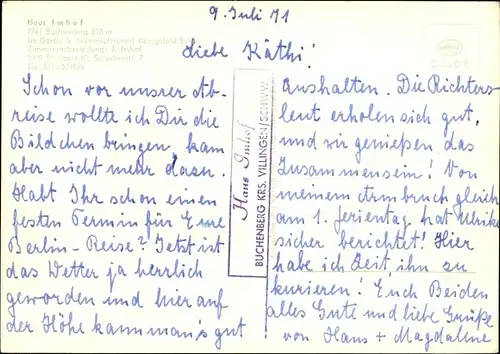 Haus Imhof
7741 Buchenberg 830 m
9. Juli 71
Liebe Käthi!
Schon vor unsrer Ab-
reise wollte ich Dir die
Bildchen bringen, kam
aber nicht mehr dazu.
Habt Ihr schon einen
festen Termin für Eure
Berlin-Reise? Jetzt ist
das Wetter ja herrlich
geworden und hier auf
der Höhe kann man's gut
Haus Imhof
BUCHENBERG KRS. VILLINGEN/SCHWW.
aushalten. Die Richters-
leut erholen sich gut,
und wir genießen das
Zusammensein! Von
meinem Armbruch gleich
am 1. Ferientag hat Ulrike
sicher berichtet! Hier
habe ich Zeit, ihn zu
kurieren! Euch Beiden
alles Gute und liebe Grüße
von Hans + Magdalene